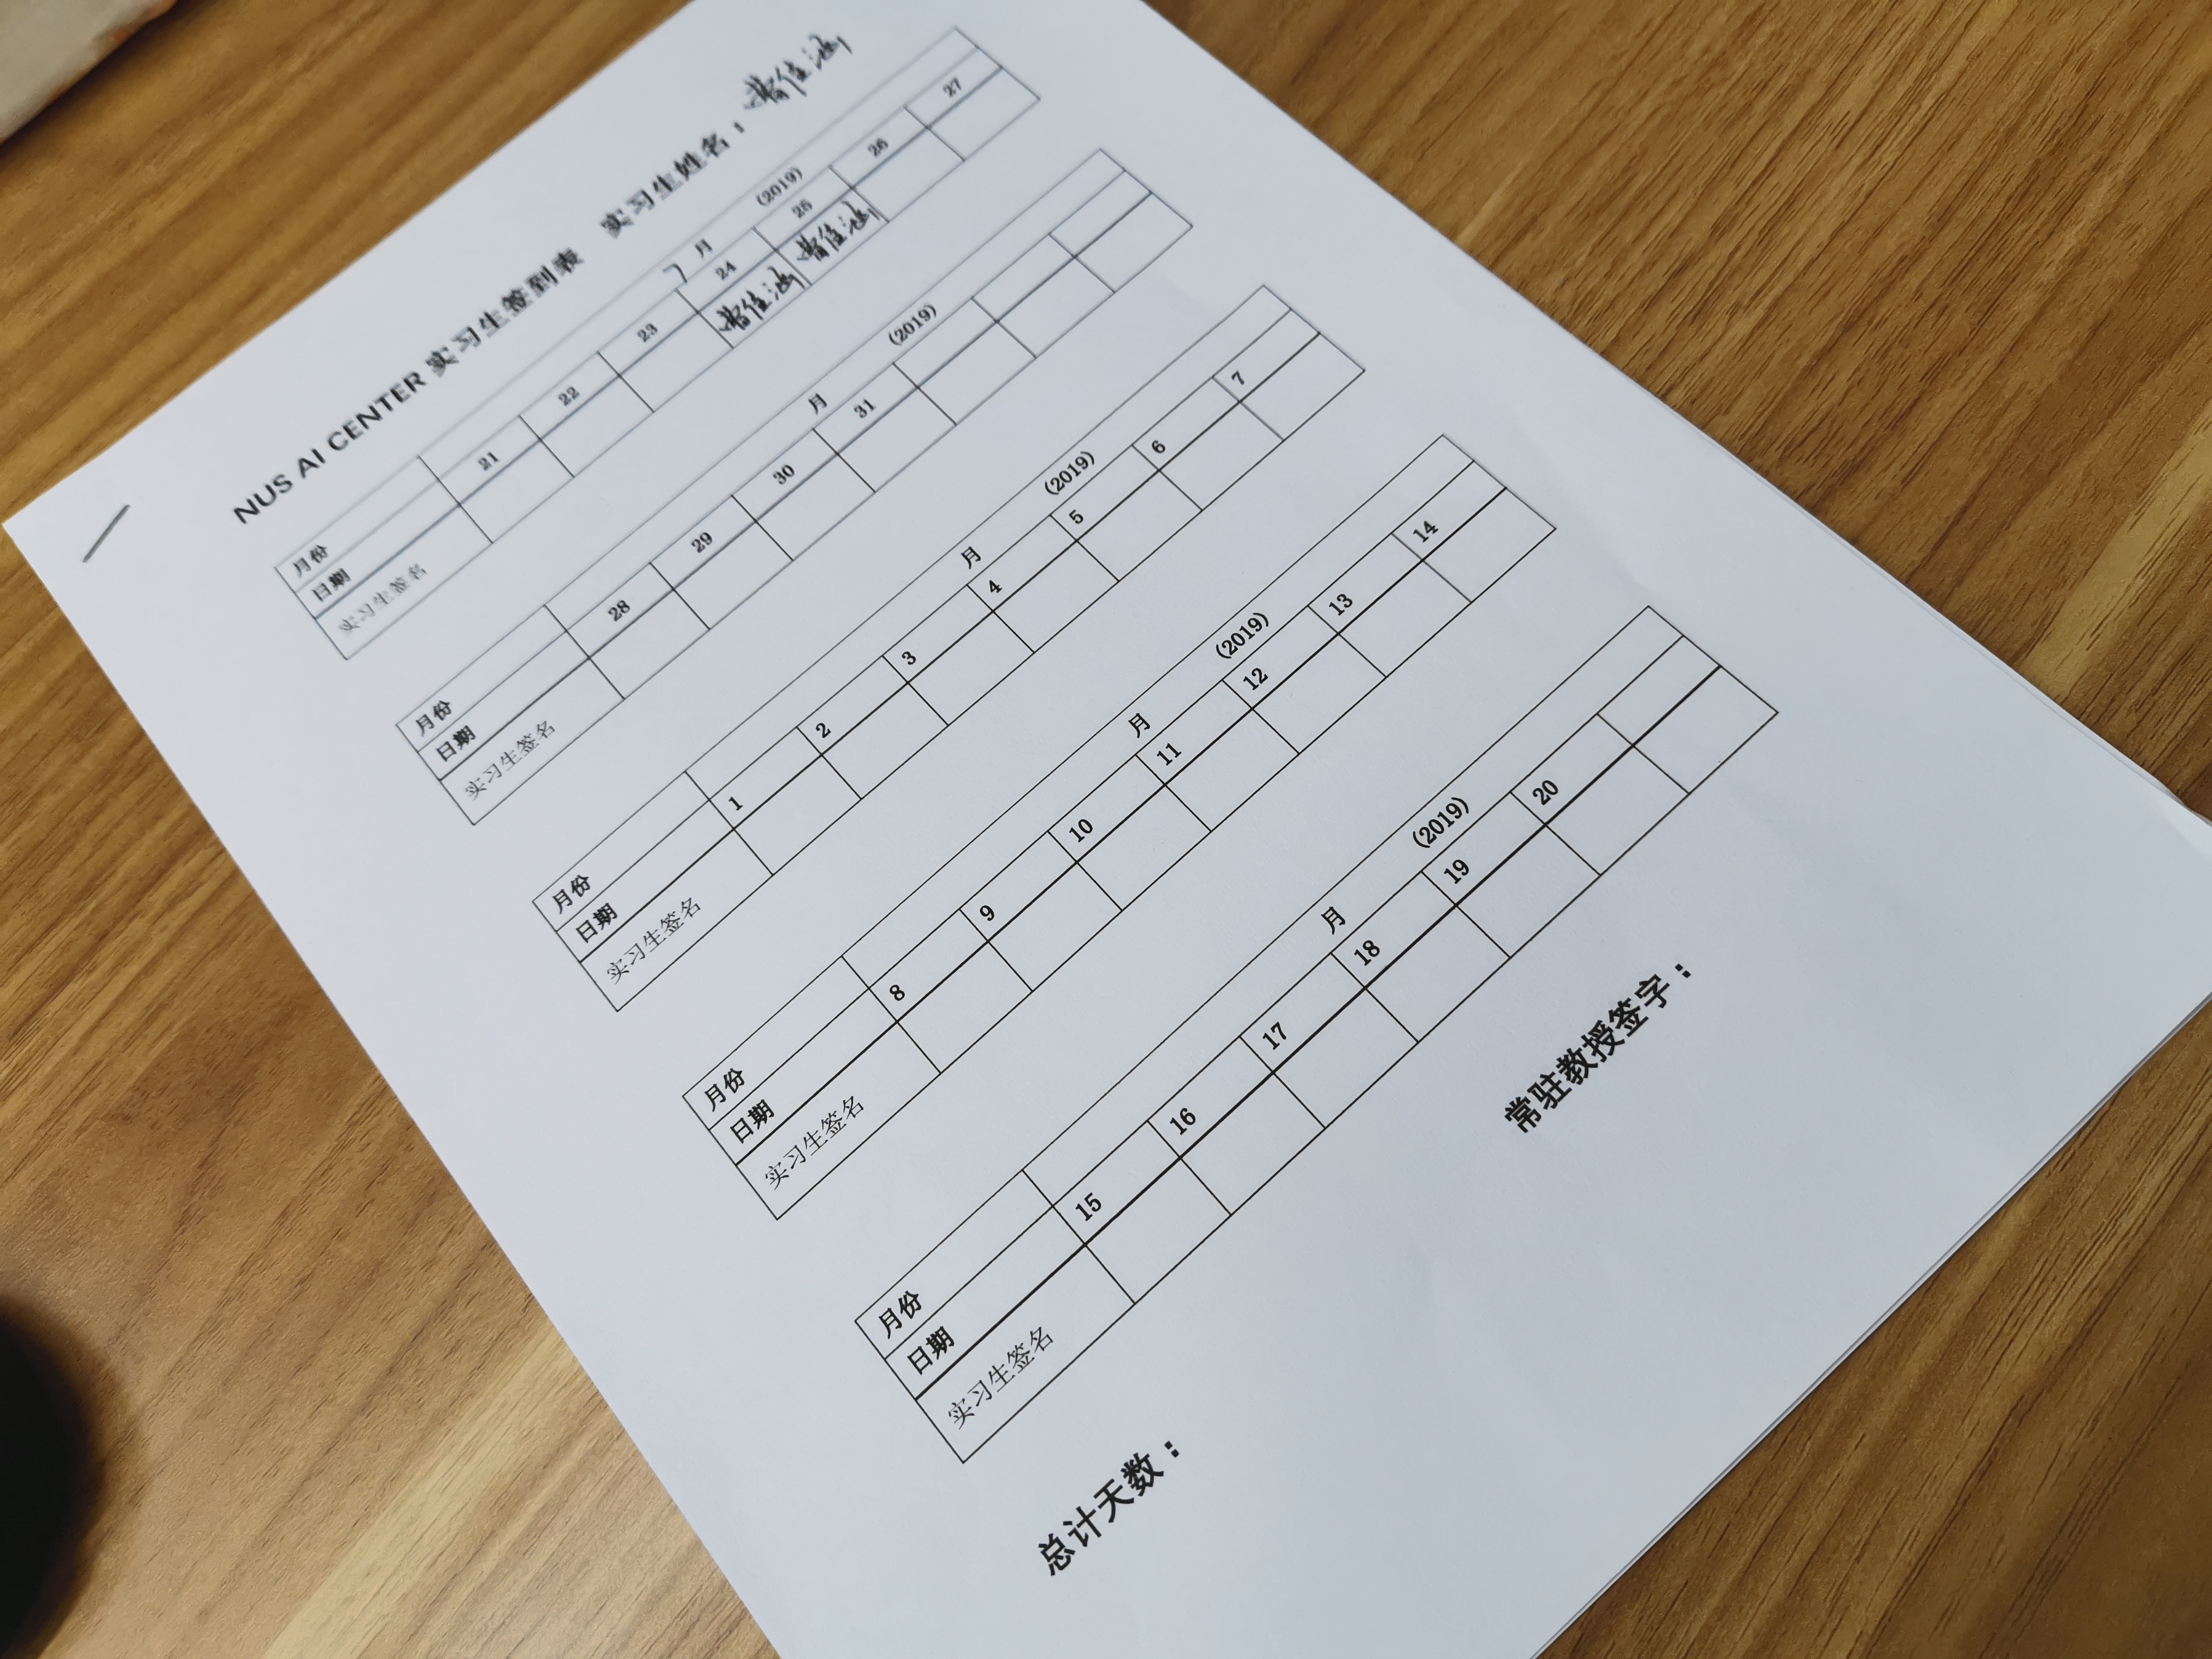 NUS AI CENTER 实习生签到表 实习生姓名：曹佳涵
月份 7 月 (2019)
日期 21 22 23 24 25 26 27
实习生签名 曹佳涵 曹佳涵
月份 月 (2019)
日期 28 29 30 31
实习生签名
月份 月 (2019)
日期 1 2 3 4 5 6 7
实习生签名
月份 月 (2019)
日期 8 9 10 11 12 13 14
实习生签名
月份 月 (2019)
日期 15 16 17 18 19 20
实习生签名
总计天数： 常驻教授签字：